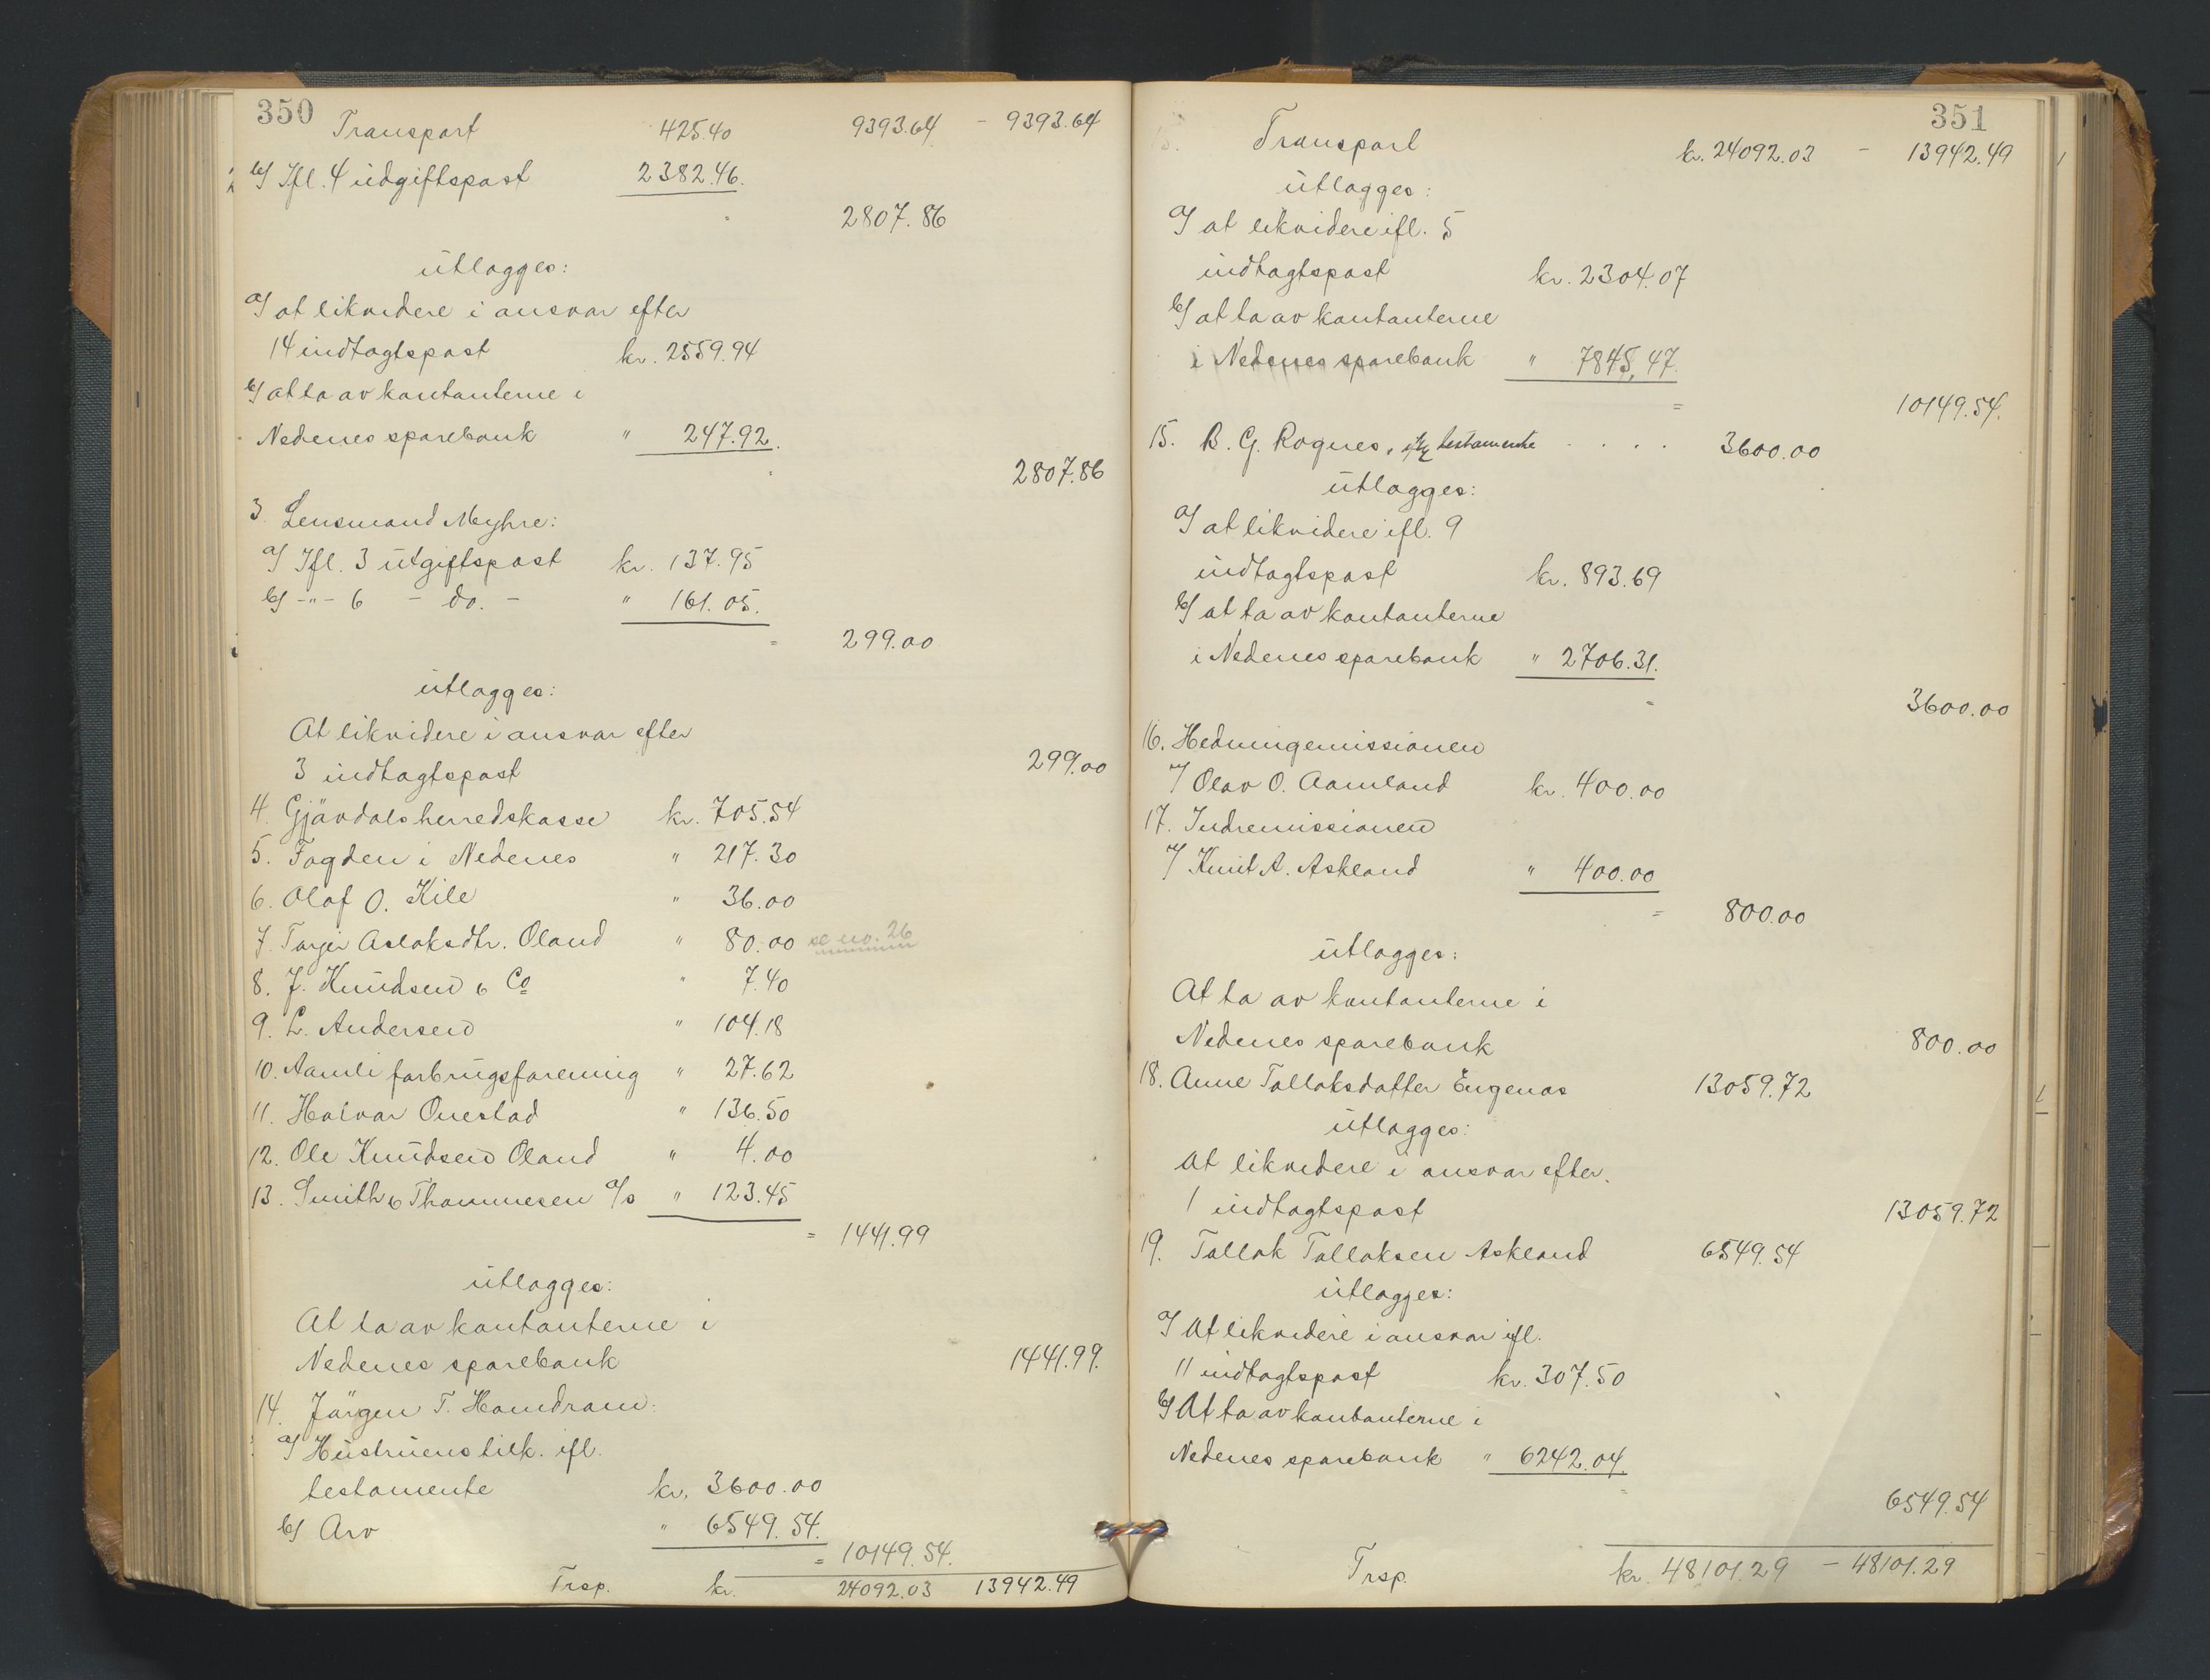 350
Transport 425.40 9393.64 - 9393.64
b/ Ifl. 4 udgiftspost 2382.46.
" 2807.86
utlægges:
a/ at likvidere i ansvar efter
14 indtægtspost kr. 2559.94
b/ at ta av kontanterne i
Nedenes sparebank " 247.92.
= 2807.86
3 Lensmand Myhre:
a/ Ifl. 3 utgiftspost kr. 137.95
b/ -"- 6 - do. - " 161.05.
= 299.00
utlægges:
At likvidere i ansvar efter
3 indtægtspost 299.00
4. Gjövdals herredskasse kr. 705.54
5. Fogden i Nedenes " 217.30
6. Olaf O. Kile " 36.00
7. Tarjer Aslaksdtr. Öland " 80.00 se no. 26
8. J. Knudsen & Co " 7.40
9. L. Andersen " 104.18
10. Aamli forbrugsforening " 27.62
11. Halvor Ouestad " 136.50
12. Ole Knudsen Öland " 4.00
13. Smith & Thommesen a/s " 123.45
= 1441.99
utlægges:
At ta av kontanterne i
Nedenes sparebank 1441.99.
14. Jörgen T. Homdrom:
a/ Hustruens tilk. ifl.
testamente kr. 3600.00
b/ Arv " 6549.54.
= 10149.54.
Trsp. kr. 24092.03 13942.49
351
Transport kr. 24092.03 - 13942.49
utlægges:
a/ at likvidere ifl. 5
indtægtspost kr. 2304.07
b/ at ta av kontanterne
i Nedenes sparebank " 7845,47.
= 10149.54.
15. B. G. Rognes, testamente . . . . 3600.00
utlægges:
a/ at likvidere ifl. 9
indtægtspost kr. 893.69
b/ at ta av kontanterne
i Nedenes sparebank " 2706.31.
= 3600.00
16. Hedningemissionen
v/ Olav O. Aamland kr. 400.00
17. Indremissionen
v/ Knut A. Askland " 400.00
= 800.00
utlægges:
At ta av kontanterne i
Nedenes sparebank 800.00
18. Anne Tallaksdatter Engenæs 13059.72
utlægges:
At likvidere i ansvar efter
1 indtægtspost 13059.72
19. Tallak Tallaksen Askland 6549.54
utlægges:
a/ At likvidere i ansvar ifl.
11 indtægtspost kr. 307.50
b/ At ta av kontanterne i
Nedenes sparebank " 6242.04.
= 6549.54
Trsp. kr. 48101.29 - 48101.29